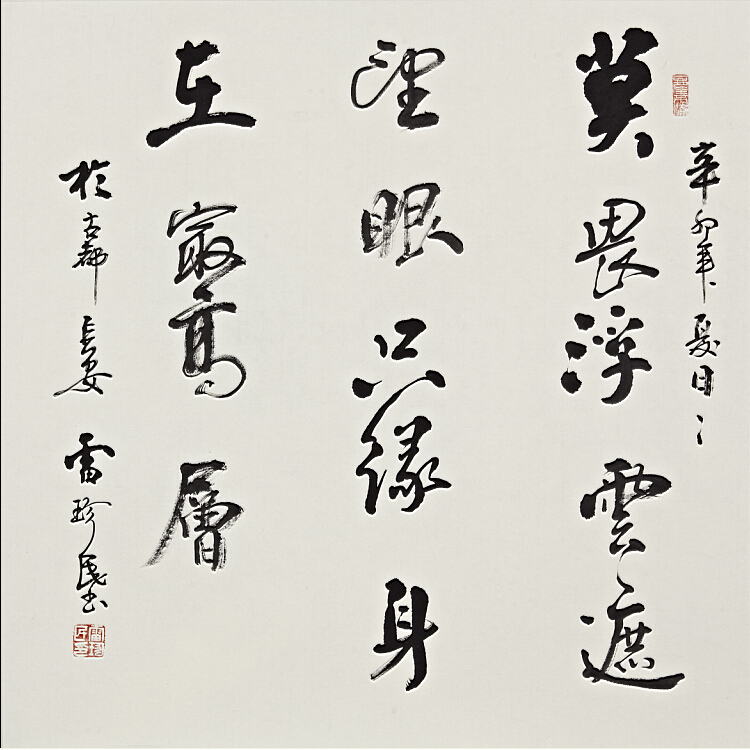 辛卯年夏日〻
莫畏浮雲遮
望眼只緣身
在最高層
於古都長安雷珍民书